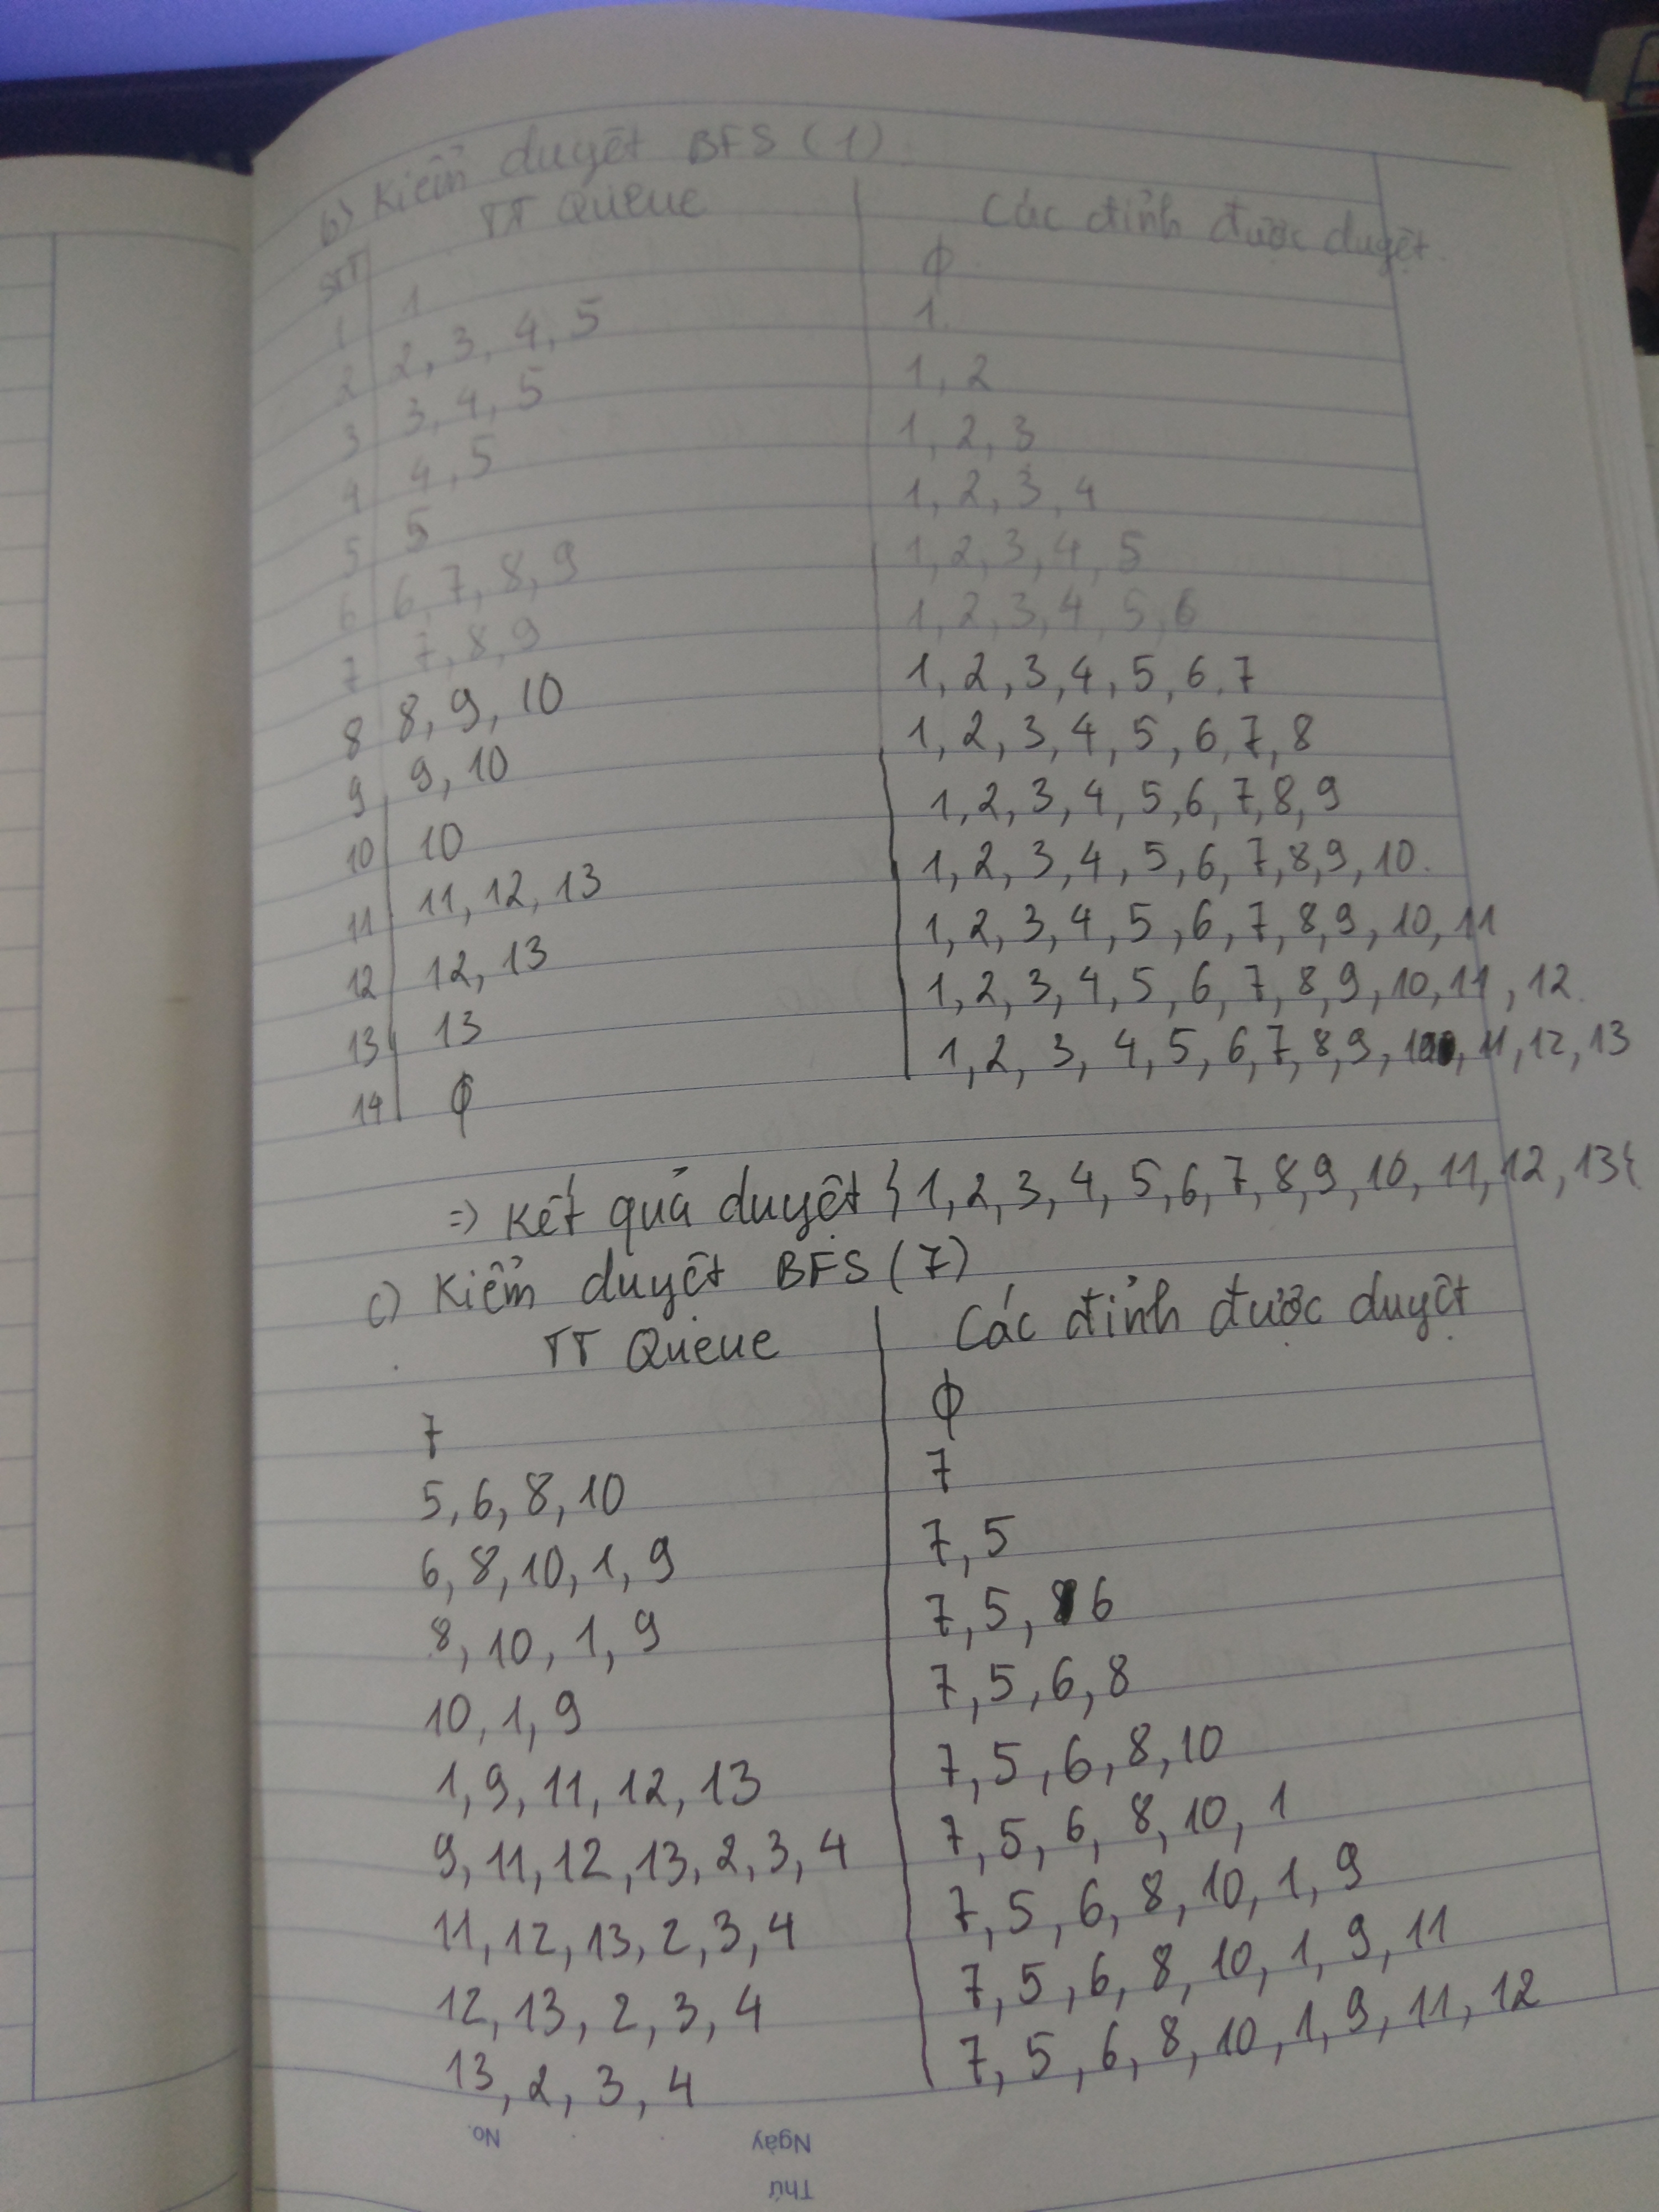 b) Kiểm duyệt BFS (1)
STT TT Queue Các đỉnh được duyệt
1 1 ϕ
2 2, 3, 4, 5 1
3 3, 4, 5 1, 2
4 4, 5 1, 2, 3
5 5 1, 2, 3, 4
6 6, 7, 8, 9 1, 2, 3, 4, 5
7 7, 8, 9 1, 2, 3, 4, 5, 6
8 8, 9, 10 1, 2, 3, 4, 5, 6, 7
9 9, 10 1, 2, 3, 4, 5, 6, 7, 8
10 10 1, 2, 3, 4, 5, 6, 7, 8, 9
11 11, 12, 13 1, 2, 3, 4, 5, 6, 7, 8, 9, 10.
12 12, 13 1, 2, 3, 4, 5, 6, 7, 8, 9, 10, 11
13 13 1, 2, 3, 4, 5, 6, 7, 8, 9, 10, 11, 12.
14 ϕ 1, 2, 3, 4, 5, 6, 7, 8, 9, 10, 11, 12, 13
=> Kết quả duyệt } 1, 2, 3, 4, 5, 6, 7, 8, 9, 10, 11, 12, 13 {
c) Kiểm duyệt BFS (7)
TT Queue Các đỉnh được duyệt
7 ϕ
5, 6, 8, 10 7
6, 8, 10, 1, 9 7, 5
8, 10, 1, 9 7, 5, 6
10, 1, 9 7, 5, 6, 8
1, 9, 11, 12, 13 7, 5, 6, 8, 10
9, 11, 12, 13, 2, 3, 4 7, 5, 6, 8, 10, 1
11, 12, 13, 2, 3, 4 7, 5, 6, 8, 10, 1, 9
12, 13, 2, 3, 4 7, 5, 6, 8, 10, 1, 9, 11
13, 2, 3, 4 7, 5, 6, 8, 10, 1, 9, 11, 12
No. Ngày
Thứ